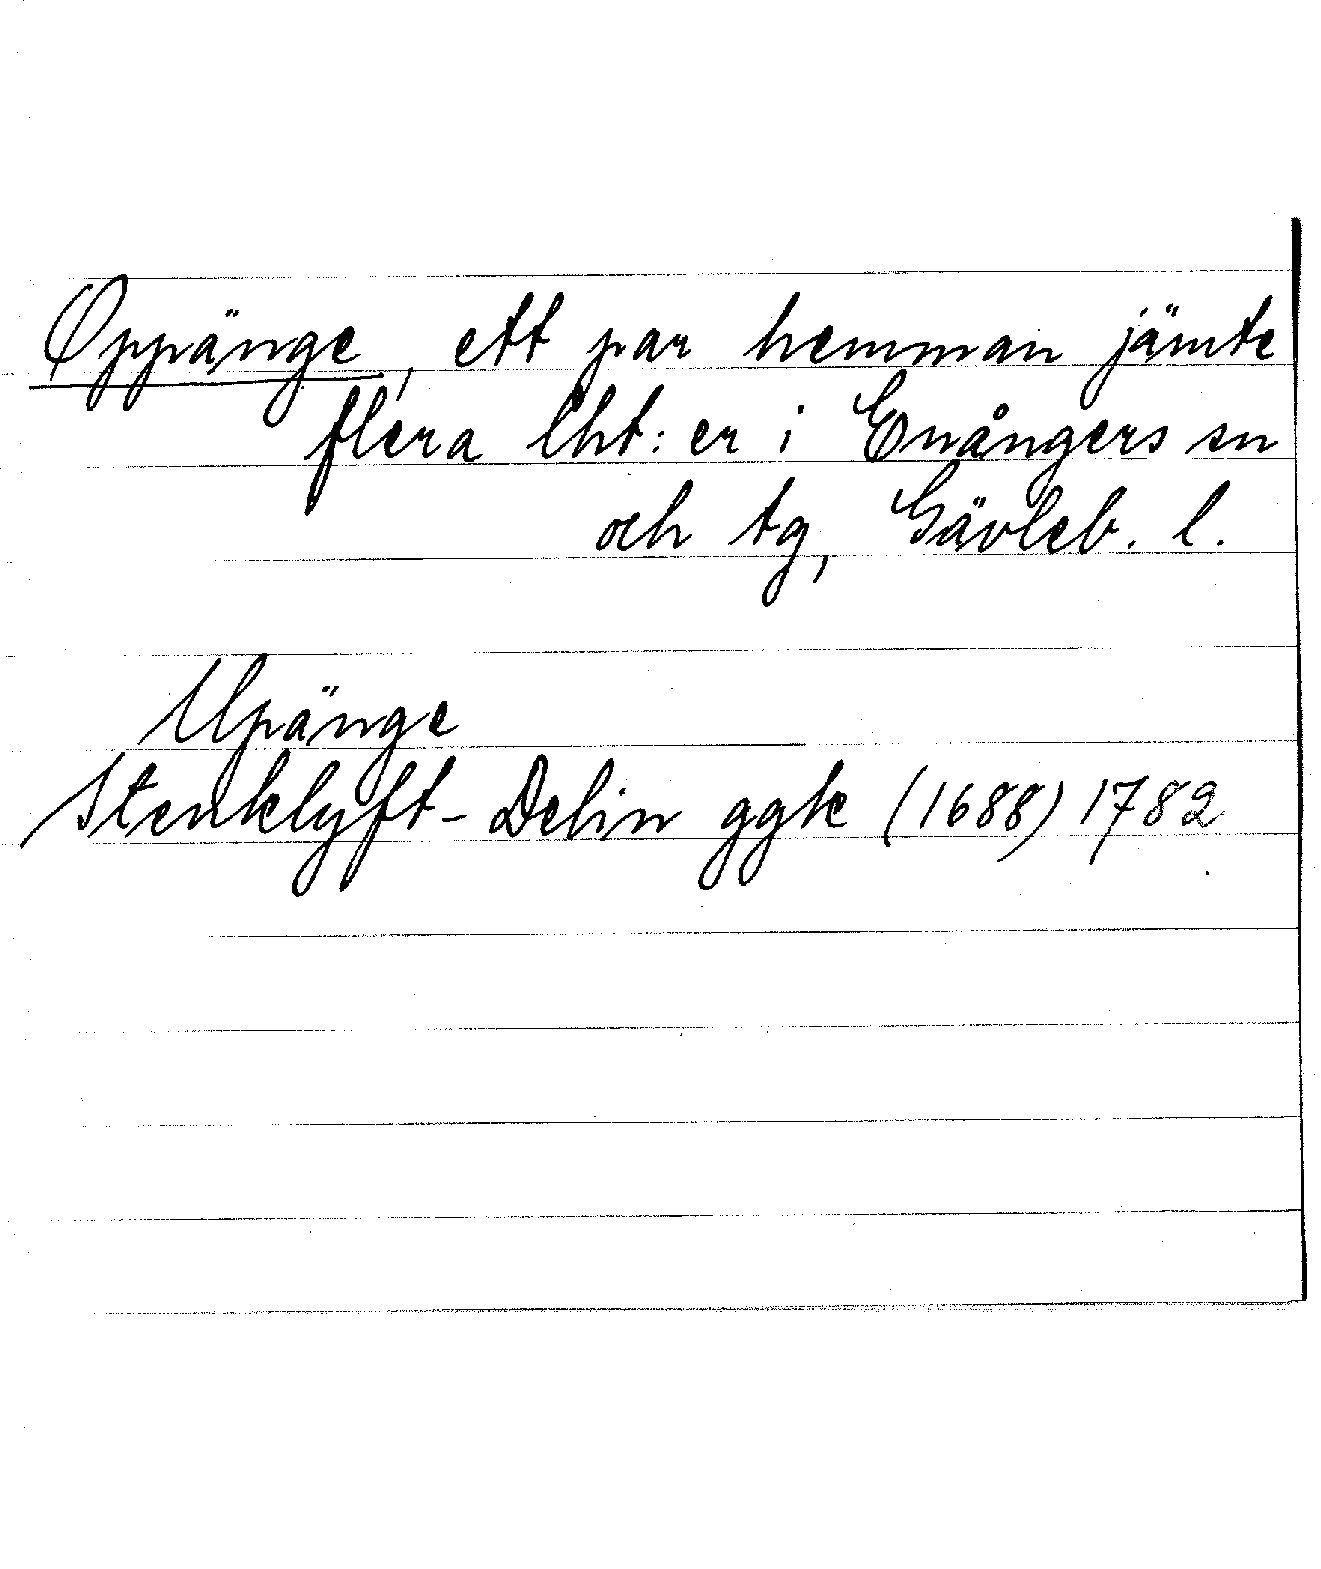 Oppänge, ett par hemman jämte
flera lht:er i Enångers sn
och tg, Gävleb. l.
Upänge
Stenklyft-Delin ggk (1688) 1782